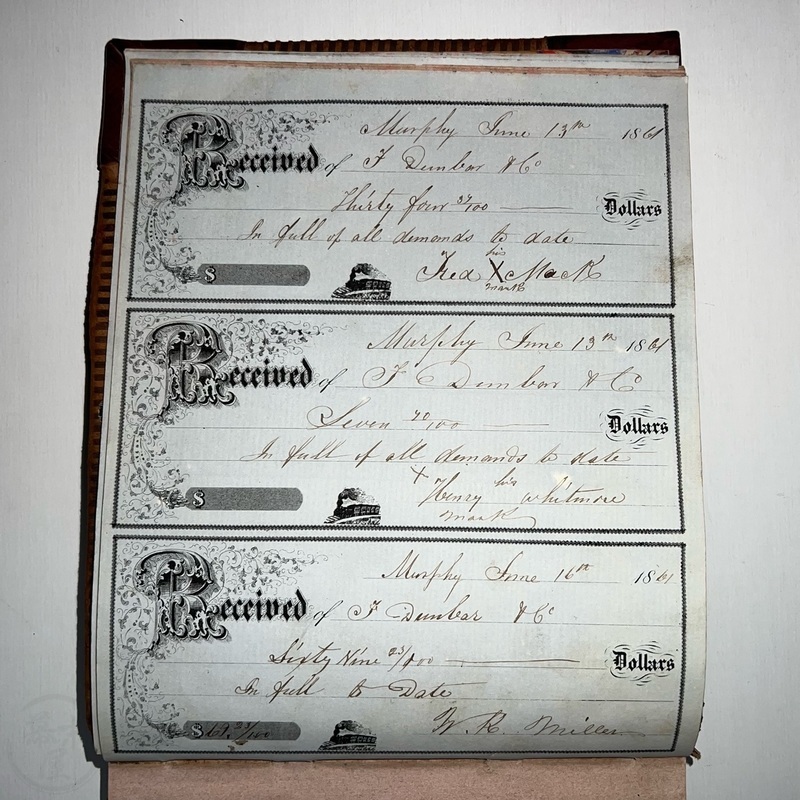 Murphy June 13th 1861
Received of F Dunbar & Co
Thirty four 37/100 Dollars
In full of all demands to date
his
Fred X Mack
mark
$
Murphy June 13th 1861
Received of F Dunbar & Co
Seven 70/100 Dollars
In full of all demands to date
X Henry his Whitmore
mark
$
Murphy June 16th 1861
Received of F Dunbar & Co
Sixty Nine 23/100 Dollars
In full to Date
$69.23/100 W. R. Miller